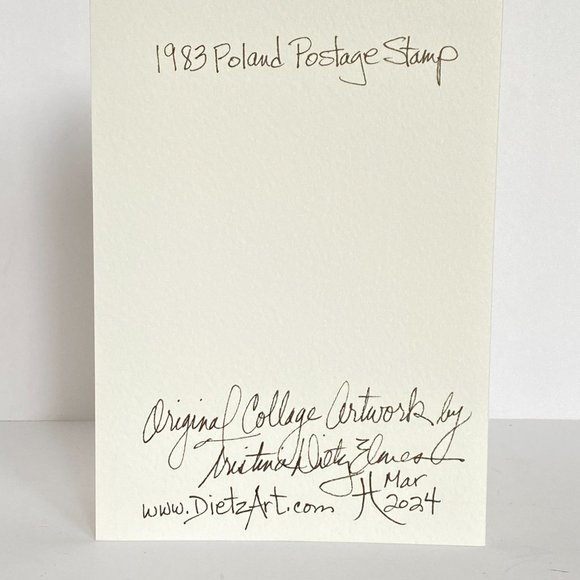 1983 Poland Postage Stamp
Original Collage Artwork by
Kristina Dietz Elmes
Mar
www.DietzArt.com
2024